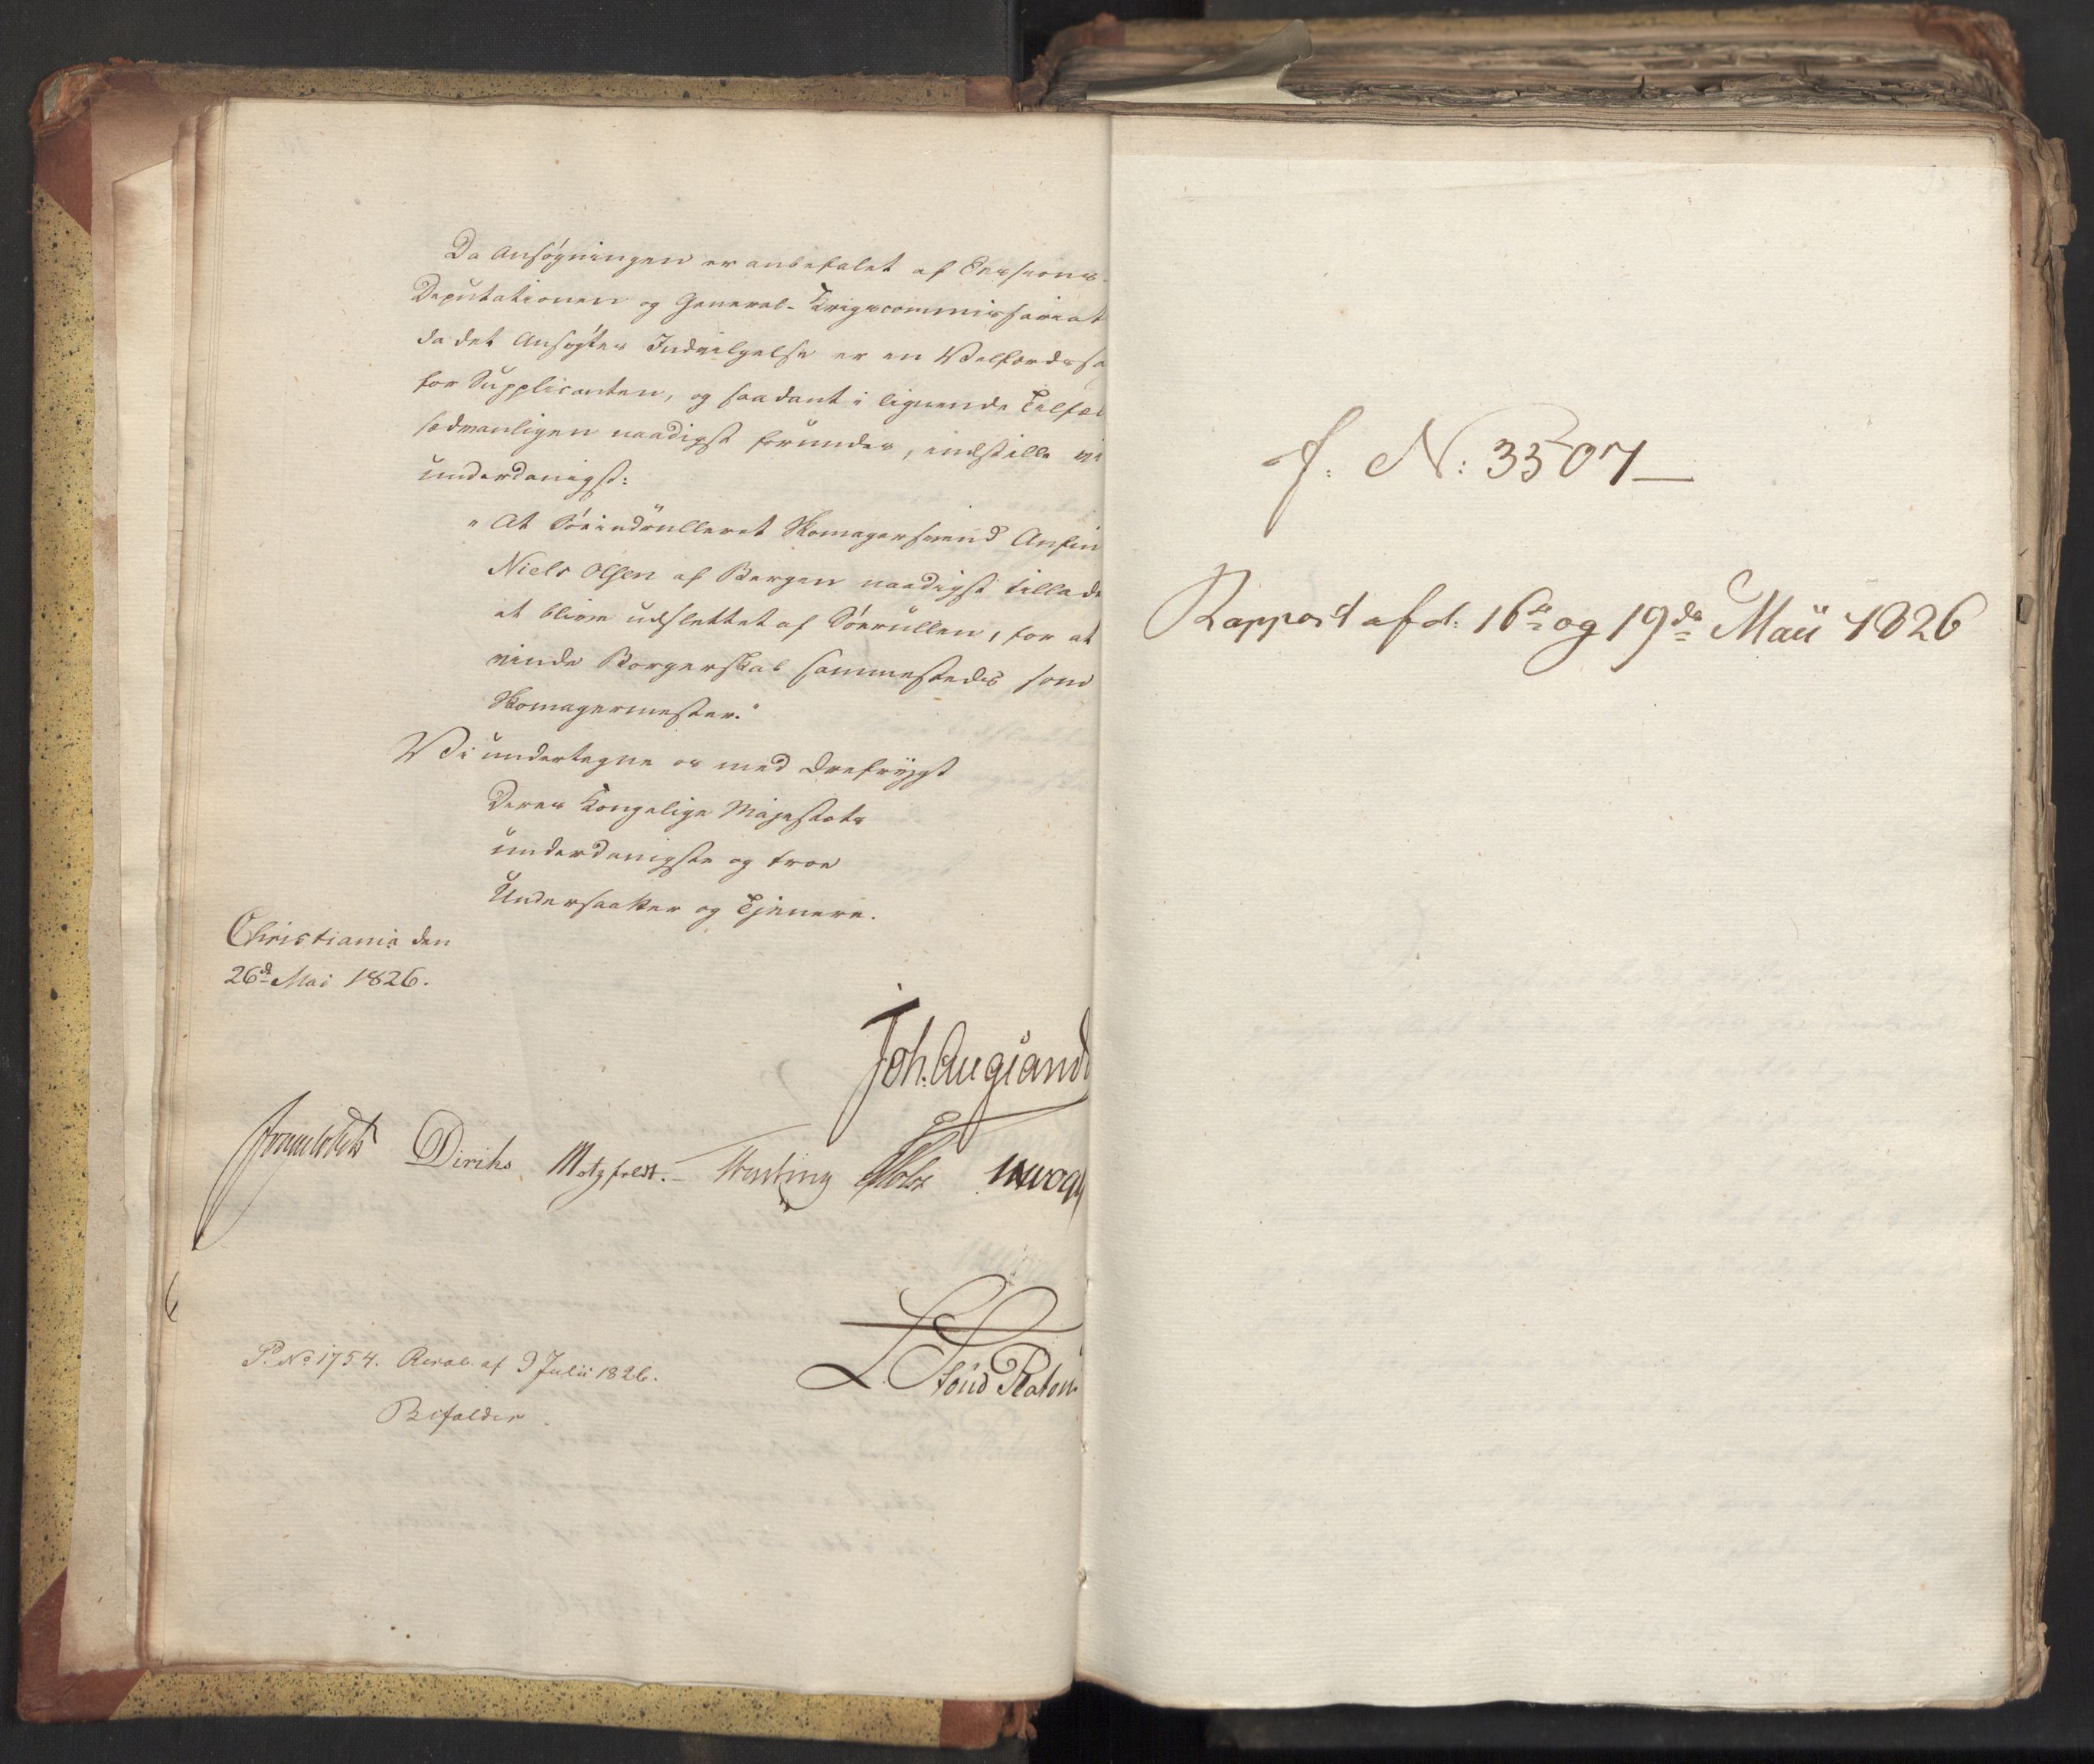 Da Ansøgningen er anbefalet af Sessions-
Deputationen og General-Krigscommissariat
da det Ansøgtes Indvilgelse er en Velfærdssa
for Supplicanten, og saadant i lignende Tilfæl
sædvanligen naadigst forundes, indstille vi
underdanigst:
"At Søeindrulleret Skomagersvend Anfin
Niels Olsen af Bergen naadigst tillade
at blive udslettet af Søerullen, for at
vinde Borgerskab sammesteds som
Skomagermester."
Vi undertegne os med Ærefrygt
Deres Kongelige Majestæts
underdanigste og troe
Undersaatter og Tjenere.
Christiania den
26de Mai 1826.
Joh. Aug. Sand
Diriks Motzfeldt. Fasting Holst
P. No 1754. Resol. af 9 Julii 1826.
Bifaldes.
L. Stoud Platou
J. N: 3507
Rapport af d: 16de og 19de Maii 1826